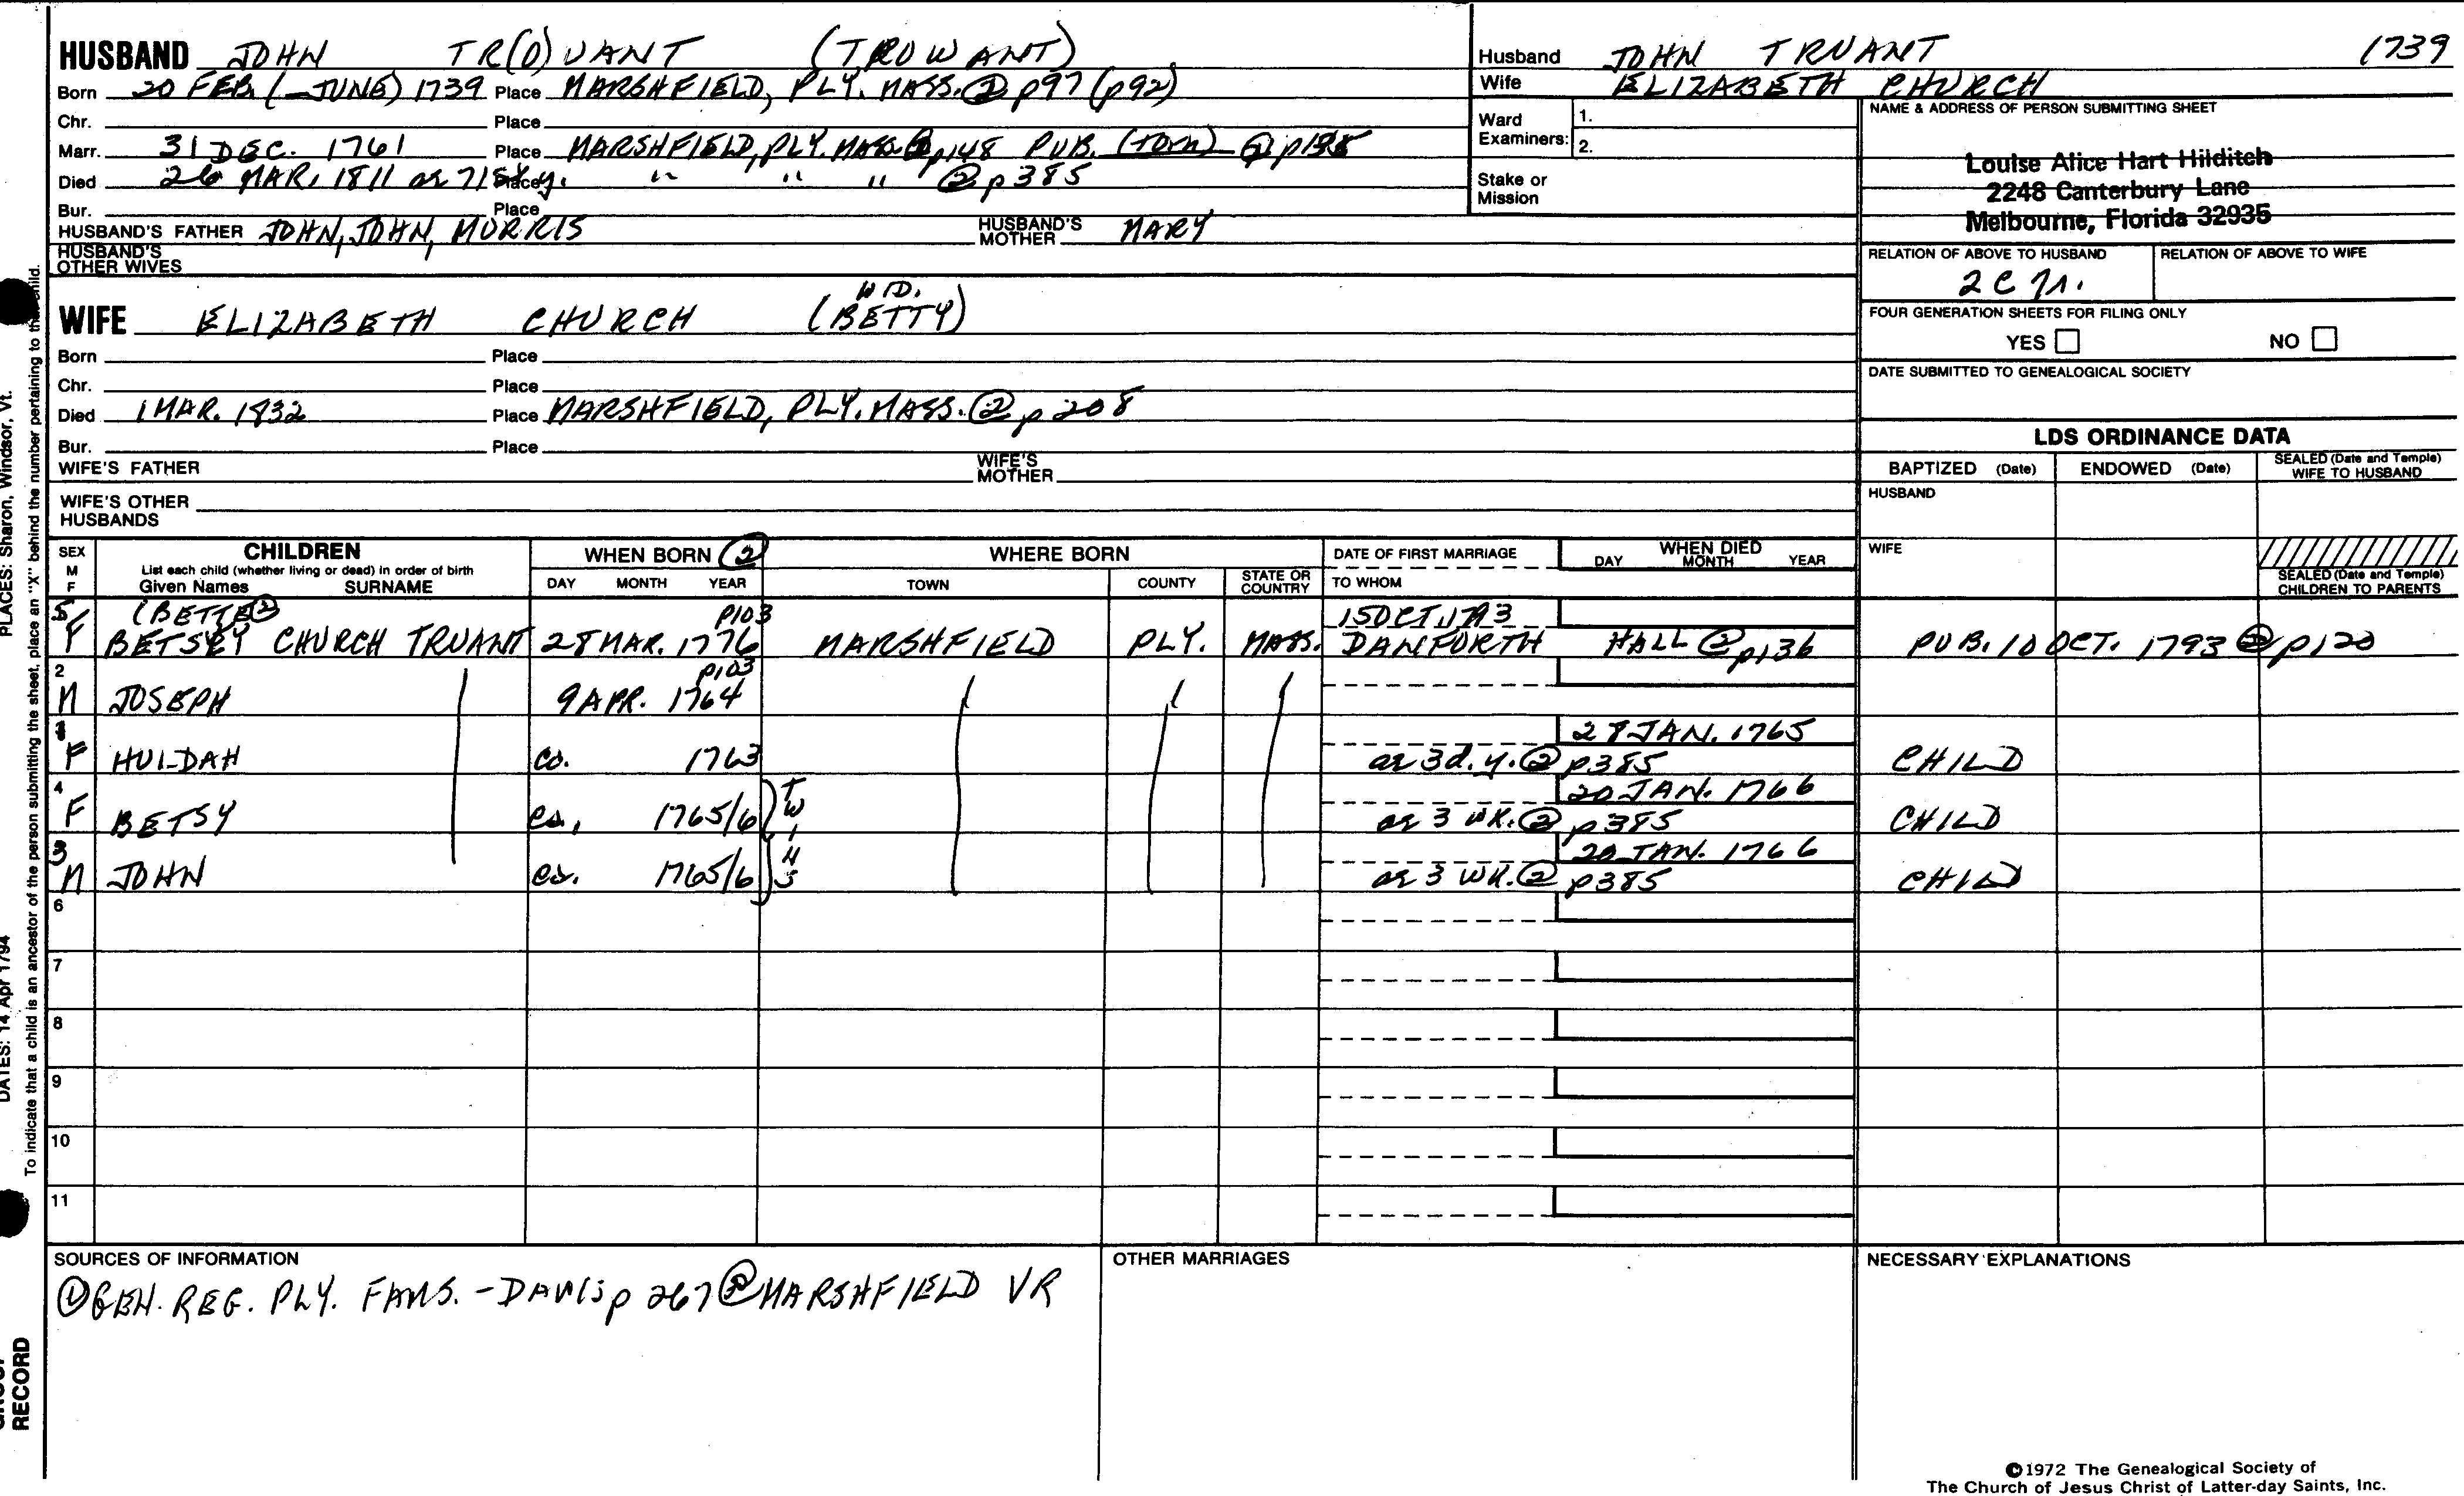 HUSBAND JOHN TR(O)UANT (TROWANT)
Born 20 FEB. (-JUNE) 1739 Place MARSHFIELD, PLY. MASS. ② p97 (p92)
Chr. Place
Marr. 31 DEC. 1761 Place MARSHFIELD, PLY. MASS. ② p148 PUB. (torn) ②
Died 26 MAR. 1811 Place " " " ② p385
Bur. Place
HUSBAND'S FATHER JOHN, JOHN, MORRIS HUSBAND'S MOTHER MARY
HUSBAND'S OTHER WIVES
Husband JOHN TRUANT 1739
Wife ELIZABETH CHURCH
Ward Examiners: 1. 2.
Stake or Mission
NAME & ADDRESS OF PERSON SUBMITTING SHEET
Louise Alice Hart Hilditch
2248 Canterbury Lane
Melbourne, Florida 32935
RELATION OF ABOVE TO HUSBAND RELATION OF ABOVE TO WIFE
2C
FOUR GENERATION SHEETS FOR FILING ONLY
YES NO
DATE SUBMITTED TO GENEALOGICAL SOCIETY
WD.
WIFE ELIZABETH CHURCH (BETTY)
Born Place
Chr. Place
Died 1 MAR. 1832 Place MARSHFIELD, PLY. MASS. ② p 208
Bur. Place
WIFE'S FATHER WIFE'S MOTHER
WIFE'S OTHER HUSBANDS
LDS ORDINANCE DATA
BAPTIZED (Date) ENDOWED (Date) SEALED (Date and Temple) WIFE TO HUSBAND
HUSBAND
WIFE
SEALED (Date and Temple) CHILDREN TO PARENTS
SEX M F
CHILDREN
List each child (whether living or dead) in order of birth
Given Names SURNAME
WHEN BORN ②
DAY MONTH YEAR
WHERE BORN
TOWN COUNTY STATE OR COUNTRY
DATE OF FIRST MARRIAGE
TO WHOM
WHEN DIED
DAY MONTH YEAR
5 (BETTE② p103 15 OCT. 1793
F BETSEY CHURCH TRUANT 28 MAR. 1776 MARSHFIELD PLY. MASS. DANFORTH HALL ② p136 PUB. 10 OCT. 1793 ② p120
2 p103
M JOSEPH 9 APR. 1764
1 28 JAN. 1765
F HULDAH ca. 1763 ae 3d. y. ② p385 CHILD
4 20 JAN. 1766
F BETSY ca. 1765/6 TWINS ae 3 WK. ② p385 CHILD
3 20 JAN. 1766
M JOHN ca. 1765/6 ae 3 WK. ② p385 CHILD
6
7
8
9
10
11
SOURCES OF INFORMATION
① GEN. REG. PLY. FAMS. - DAVIS p 267 ② MARSHFIELD VR
OTHER MARRIAGES
NECESSARY EXPLANATIONS
©1972 The Genealogical Society of
The Church of Jesus Christ of Latter-day Saints, Inc.
PLACES: Sharon, Windsor, Vt.
DATES: 14 Apr 1794
To indicate that a child is an ancestor of the person submitting the sheet, place an "X" behind the number pertaining to that child.
RECORD